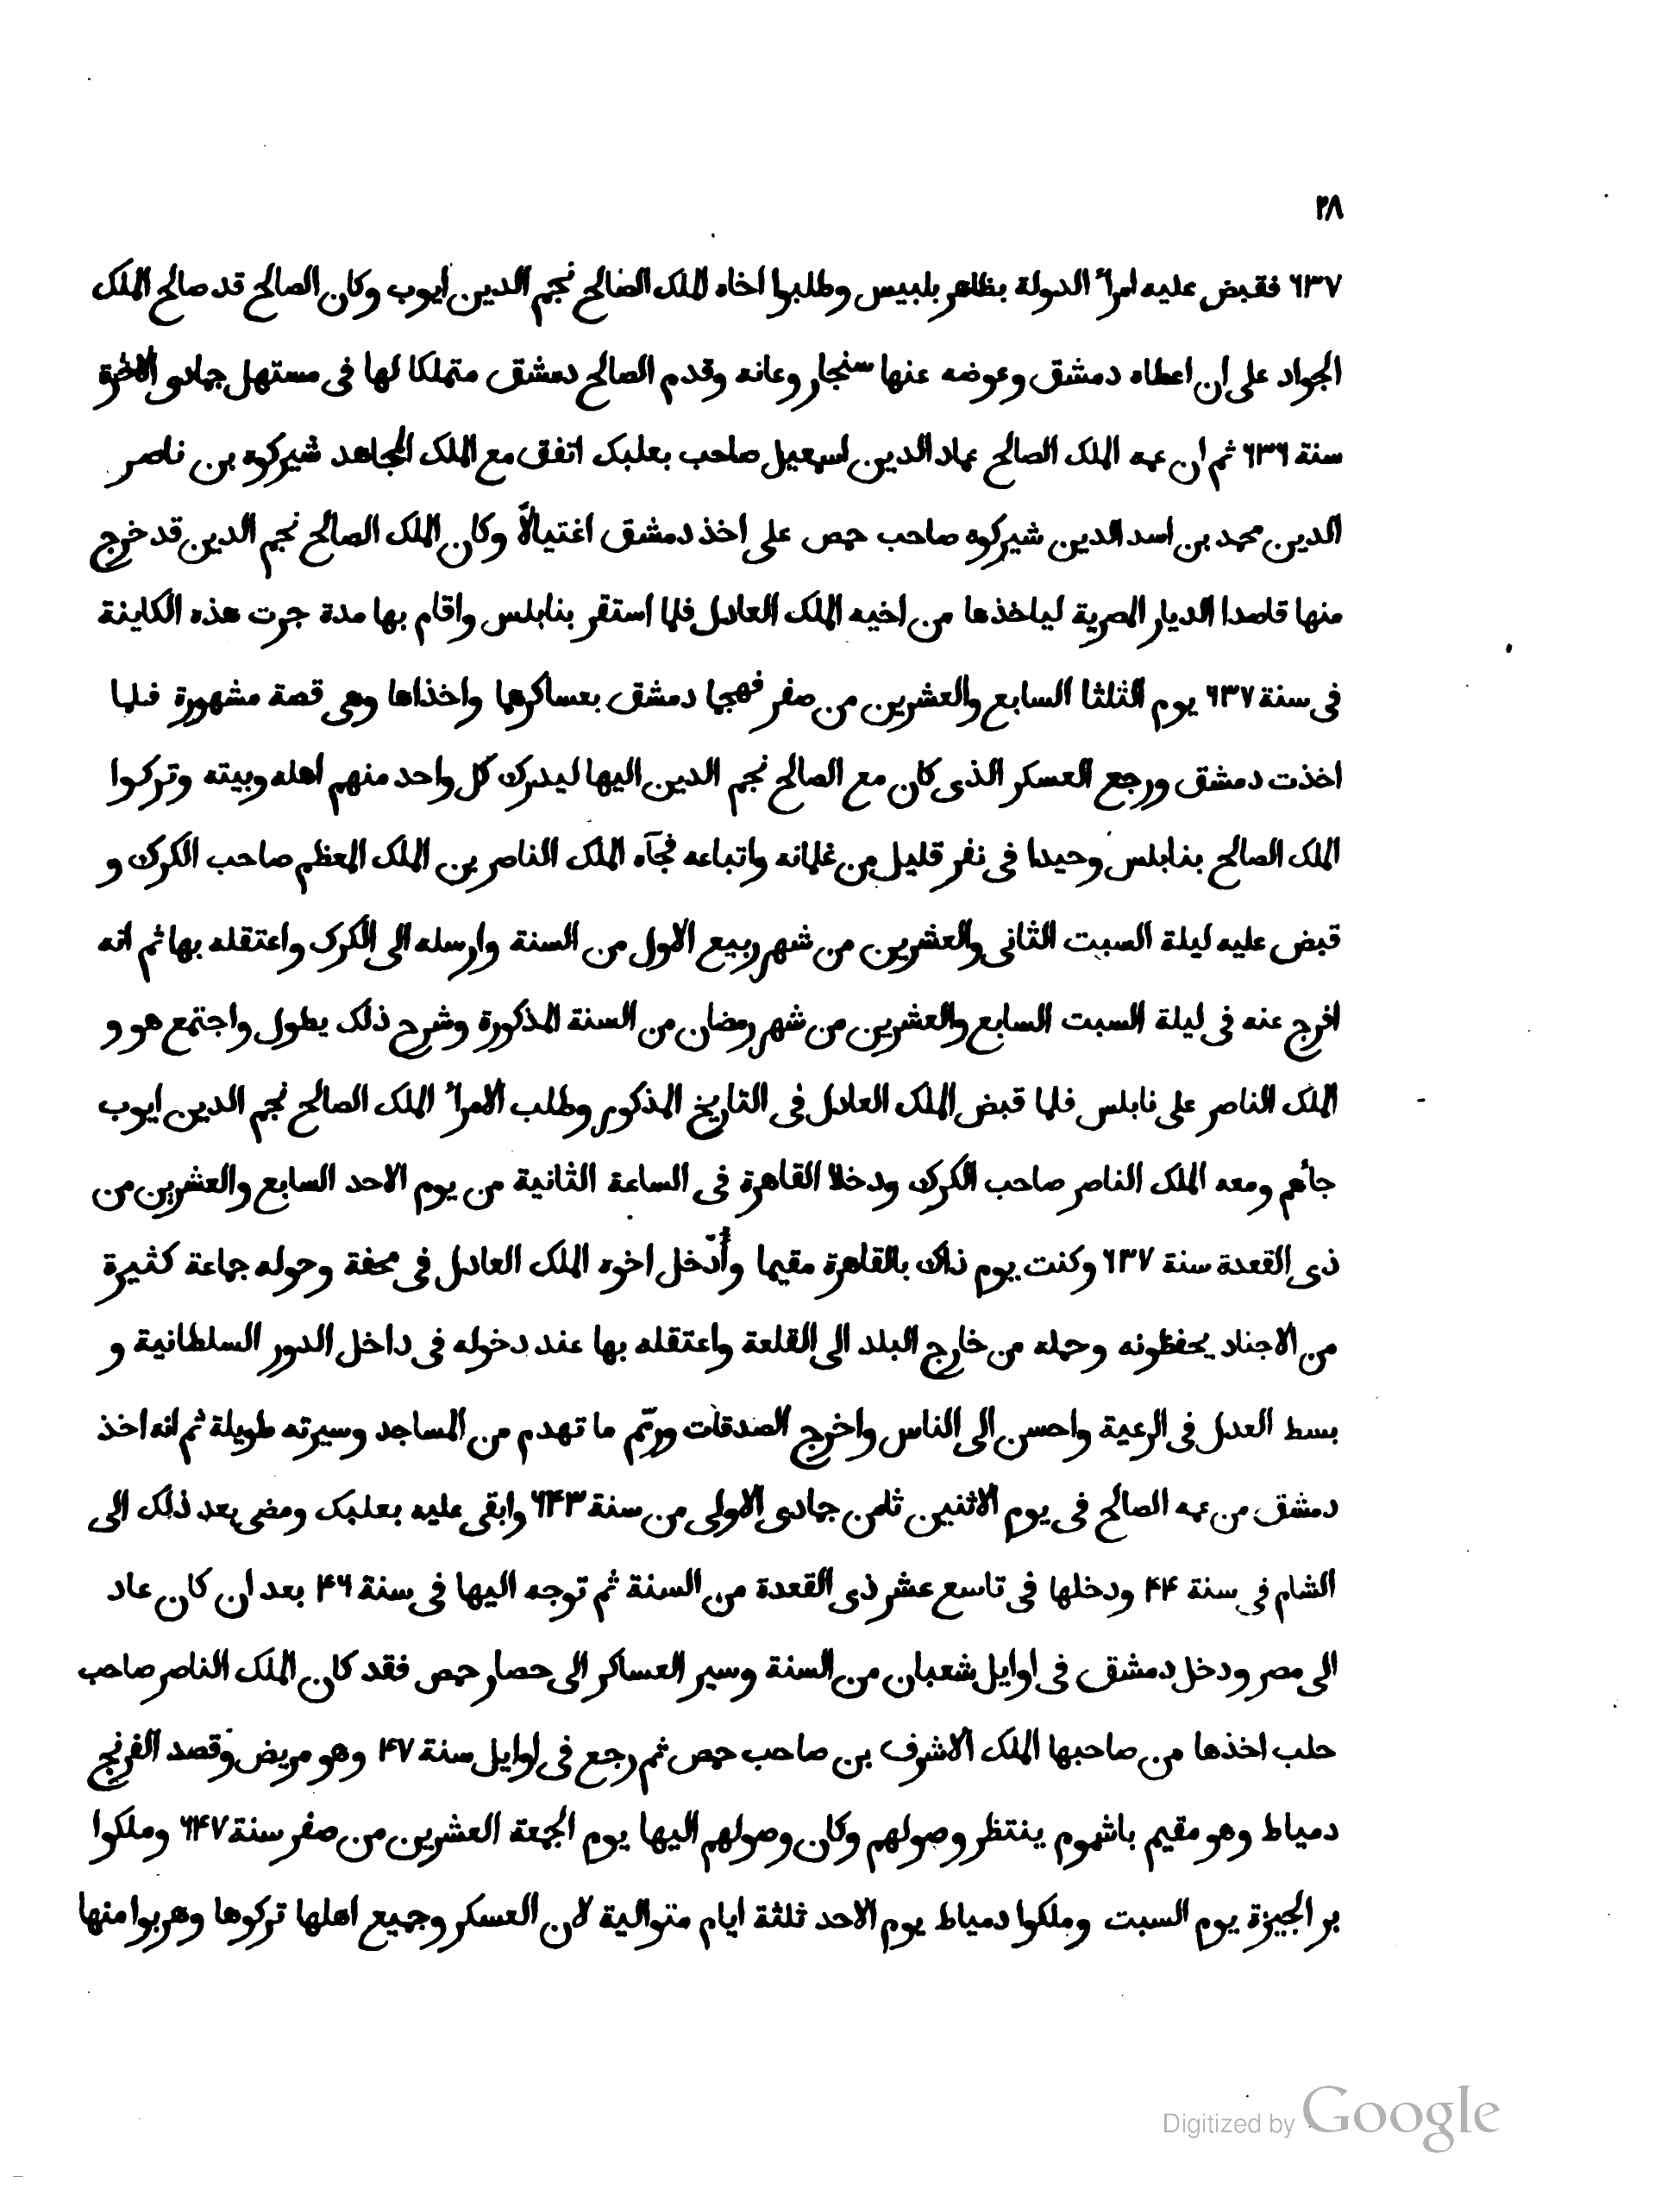 ٢٨
٦٣٧ فقبض عليه امرآ الدولة بظاهر بلبيس وطلبوا اخاه الملك الصالح نجم الدين ايوب وكان الصالح قد صالح الملك
الجواد على ان اعطاه دمشق وعوضه عنها سنجار وعانه وقدم الصالح دمشق متملكا لها فى مستهل جمادى الاخرة
سنة ٦٣٦ ثم ان عمه الملك الصالح عماد الدين اسمعيل صاحب بعلبك اتفق مع الملك المجاهد شيركوه بن ناصر
الدين محمد بن اسد الدين شيركوه صاحب حمص على اخذ دمشق اغتيالاً وكان الملك الصالح نجم الدين قد خرج
منها قاصدا الديار المصرية لياخذها من اخيه الملك العادل فلما استقر بنابلس واقام بها مدة جرت هذه الكاينة
فى سنة ٦٣٧ يوم الثلثا السابع والعشرين من صفر فهجما دمشق بعساكرهما واخذاها وهى قصة مشهورة فلما
اخذت دمشق ورجع العسكر الذى كان مع الصالح نجم الدين اليها ليدرك كل واحد منهم اهله وبيته وتركوا
الملك الصالح بنابلس وحيدا فى نفر قليل من غلمانه واتباعه فجآه الملك الناصر بن الملك المعظم صاحب الكرك و
قبض عليه ليلة السبت الثانى والعشرين من شهر ربيع الاول من السنة وارسله الى الكرك واعتقله بها ثم انه
افرج عنه فى ليلة السبت السابع والعشرين من شهر رمضان من السنة المذكورة وشرح ذلك يطول واجتمع هو و
الملك الناصر على نابلس فلما قبض الملك العادل فى التاريخ المذكور وطلب الامرآ الملك الصالح نجم الدين ايوب
جأهم ومعه الملك الناصر صاحب الكرك ودخلا القاهرة فى الساعة الثانية من يوم الاحد السابع والعشرين من
ذى القعدة سنة ٦٣٧ وكنت يوم ذاك بالقاهرة مقيما وأدخل اخوه الملك العادل فى محفة وحوله جماعة كثيرة
من الاجناد يحفظونه وحمله من خارج البلد الى القلعة واعتقله بها عند دخوله فى داخل الدور السلطانية و
بسط العدل فى الرعية واحسن الى الناس واخرج الصدقات ورمّم ما تهدم من المساجد وسيرته طويلة ثم انه اخذ
دمشق من عمه الصالح فى يوم الاثنين ثامن جمادى الاولى من سنة ٦۴٣ وابقى عليه بعلبك ومضى بعد ذلك الى
الشام فى سنة ۴۴ ودخلها فى تاسع عشر ذى القعدة من السنة ثم توجه اليها فى سنة ۴٦ بعد ان كان عاد
الى مصر ودخل دمشق فى اوايل شعبان من السنة وسير العساكر الى حصار حمص فقد كان الملك الناصر صاحب
حلب اخذها من صاحبها الملك الاشرف بن صاحب حمص ثم رجع فى اوايل سنة ۴٧ وهو مريض وقصد الفرنج
دمياط وهو مقيم باشموم ينتظر وصولهم وكان وصولهم اليها يوم الجمعة العشرين من صفر سنة ٦۴٧ وملكوا
بر الجيزة يوم السبت وملكوا دمياط يوم الاحد ثلثة ايام متوالية لان العسكر وجميع اهلها تركوها وهربوا منها
Digitized by Google